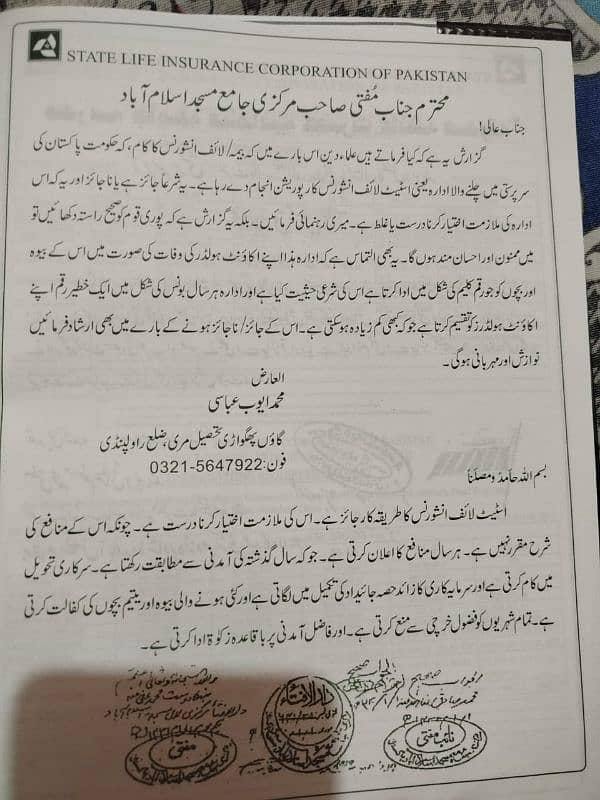 STATE LIFE INSURANCE CORPORATION OF PAKISTAN
محترم جناب مُفتی صاحب مرکزی جامع مسجد اسلام آباد
جنابِ عالی!
گزارش یہ ہے کہ کیا فرماتے ہیں علماء دین اس بارے میں کہ بیمہ/لائف انشورنس کا کام، کہ حکومت پاکستان کی
سرپرستی میں چلنے والا ادارہ یعنی اسٹیٹ لائف انشورنس کارپوریشن انجام دے رہا ہے۔ یہ شرعاً جائز ہے یا ناجائز اور یہ کہ اس
ادارہ کی ملازمت اختیار کرنا درست یا غلط ہے۔ میری رہنمائی فرمائیں۔ بلکہ یہ گزارش ہے کہ پوری قوم کو صحیح راستہ دکھائیں تو
میں ممنون اور احسان مند ہوں گا۔ یہ بھی التماس ہے کہ ادارہ ہذا اپنے اکاؤنٹ ہولڈر کی وفات کی صورت میں اس کے بیوہ
اور بچوں کو جو رقم کلیم کی شکل میں ادا کرتا ہے اس کی شرعی حیثیت کیا ہے اور ادارہ ہر سال بونس کی شکل میں ایک خطیر رقم اپنے
اکاؤنٹ ہولڈرز کو تقسیم کرتا ہے جو کہ کبھی کم زیادہ ہو سکتی ہے۔ اس کے جائز/ناجائز ہونے کے بارے میں بھی ارشاد فرمائیں
نوازش اور مہربانی ہوگی۔
العارض
محمد ایوب عباسی
گاؤں پھگواڑی تحصیل مری، ضلع راولپنڈی
فون: 0321-5647922
بسم اللہ حامدً و مصلیاً
اسٹیٹ لائف انشورنس کا طریقہ کار جائز ہے۔ اس کی ملازمت اختیار کرنا درست ہے۔ چونکہ اس کے منافع کی
شرح مقرر نہیں ہے۔ ہر سال منافع کا اعلان کرتی ہے۔ جو کہ سال گذشتہ کی آمدنی سے مطابقت رکھتا ہے۔ سرکاری تحویل
میں کام کرتی ہے اور سرمایہ کاری کا زائد حصہ جائیداد کی تکمیل میں لگاتی ہے اور کئی ہونے والی بیوہ اور یتیم بچوں کی کفالت کرتی
ہے۔ تمام شہریوں کو فضول خرچی سے منع کرتی ہے۔ اور فاضل آمدنی پر باقاعدہ زکوۃ ادا کرتی ہے۔
الجواب صحیح
دار الافتاء
نائب مفتی
مفتی